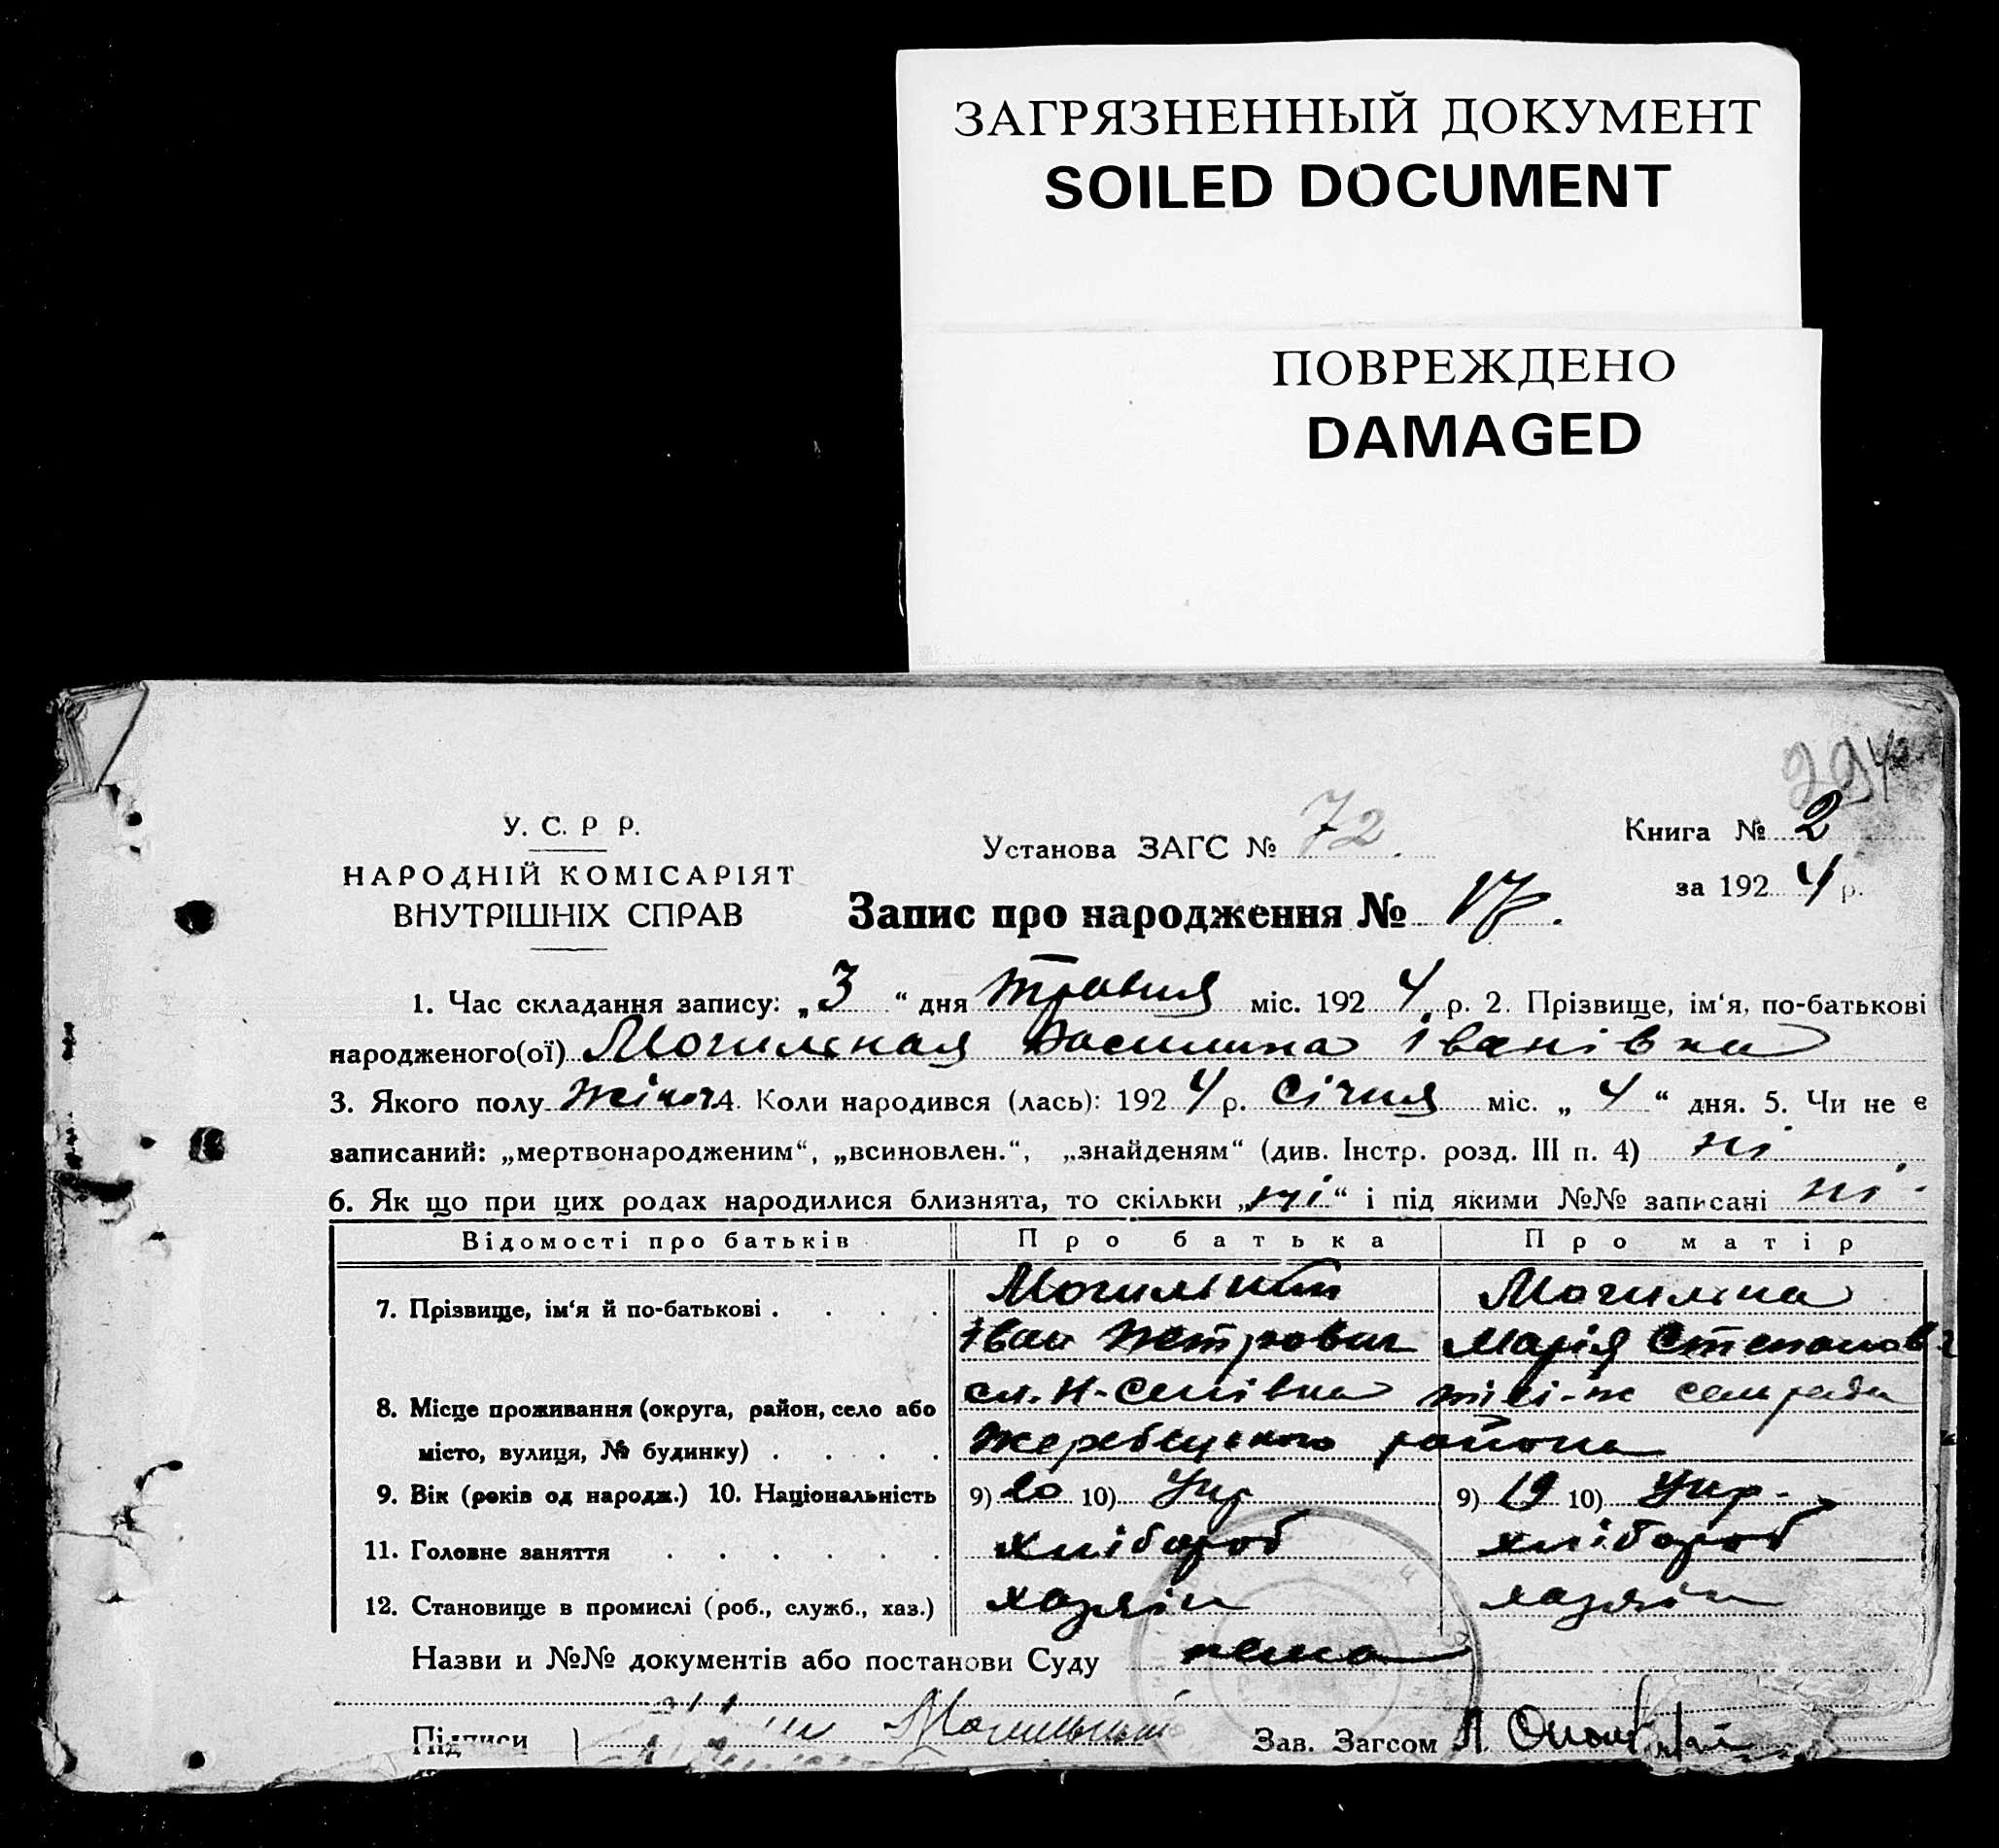 ЗАГРЯЗНЕННЫЙ ДОКУМЕНТ
SOILED DOCUMENT
ПОВРЕЖДЕНО
DAMAGED
294
У. С. Р Р.
Установа ЗАГС № 72.
Книга № 2
НАРОДНІЙ КОМІСАРІЯТ
ВНУТРІШНІХ СПРАВ
за 1924 р.
Запис про народження № 17.
1. Час складання запису: „3“ дня травня міс. 1924 р. 2. Прізвище, ім‘я, по-батькові
народженого(ої) Могилєная Василина Іванівна
3. Якого полу жіноч 4. Коли народився (лась): 1924 р. Січня міс. „4“ дня. 5. Чи не є
записаний: „мертвонародженим“, „всиновлен.“, „знайденям“ (див. Інстр. розд. III п. 4) ні
6. Як що при цих родах народилися близнята, то скільки „ні“ і під якими №№ записані ні
Відомості про батьків Про батька Про матір
7. Прізвище, ім‘я й по-батькові . . . . Могиліний Могиліна
Іван Петрович Марія Степанов
8. Місце проживання (округа, район, село або сл. Н- сельради
місто, вулиця, № будинку) . . . . Жеребецького района
9. Вік (років од народж.) 10. Національність 9) 20 10) Укр 9) 19 10) Укр.
11. Головне заняття . . . . . . хлібороб хлібороб
12. Становище в промислі (роб., служб., хаз.) хазяїн хазяїн
Назви и №№ документів або постанови Суду нема
Підписи Зав. Загсом